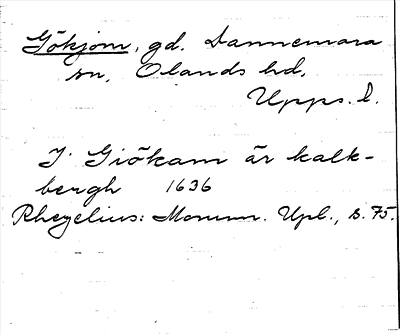 Gökjom, gd. Dannemara
sn, Olands hd,
Upps. l.
I Giökam är kalk-
bergh 1636
Rhezelius: Monum. Upl., s. 75.